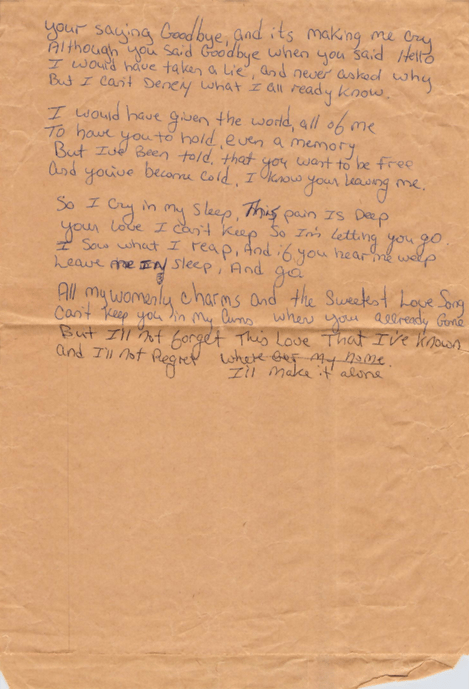 your saying Goodbye, and its making me cry
Although you said Goodbye when you said Hello
I would have taken a Lie, and never asked why
But I can't Deney what I all ready know.
I would have given the world, all of me
To have you to hold, even a memory
But I've Been told, that you want to be free
and you've become cold, I know your leaving me.
So I Cry in my Sleep, This pain Is Deep
your Love I can't Keep So I'm Letting you go.
I Sow what I reap, And if you hear me weep
Leave me IN Sleep, And go
All my womenly charms and the Sweetest Love Song
Can't keep you in my arms when your allready Gone
But I'll not forget This Love That I've known
and I'll not Regret where my name.
I'll make it alone